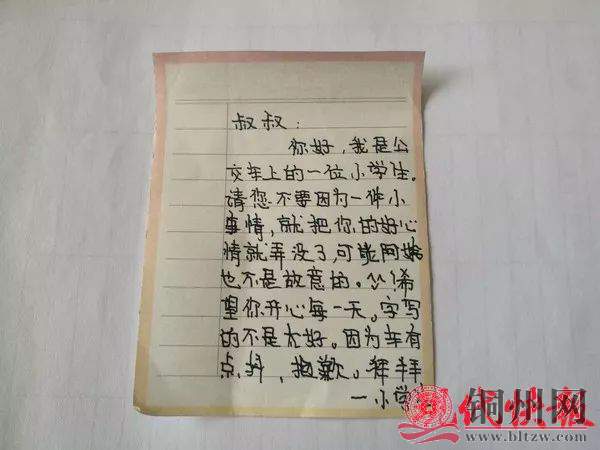 叔叔：
你好，我是公
交车上的一位小学生.
请您不要因为一件小
事情，就把你的好心
情就弄没了，可能阿姨
也不是故意的。^^!希
望你开心每一天。字写
的不是太好。因为车有
点抖，抱歉。拜拜
一小学
铜州网
www.bltzw.com